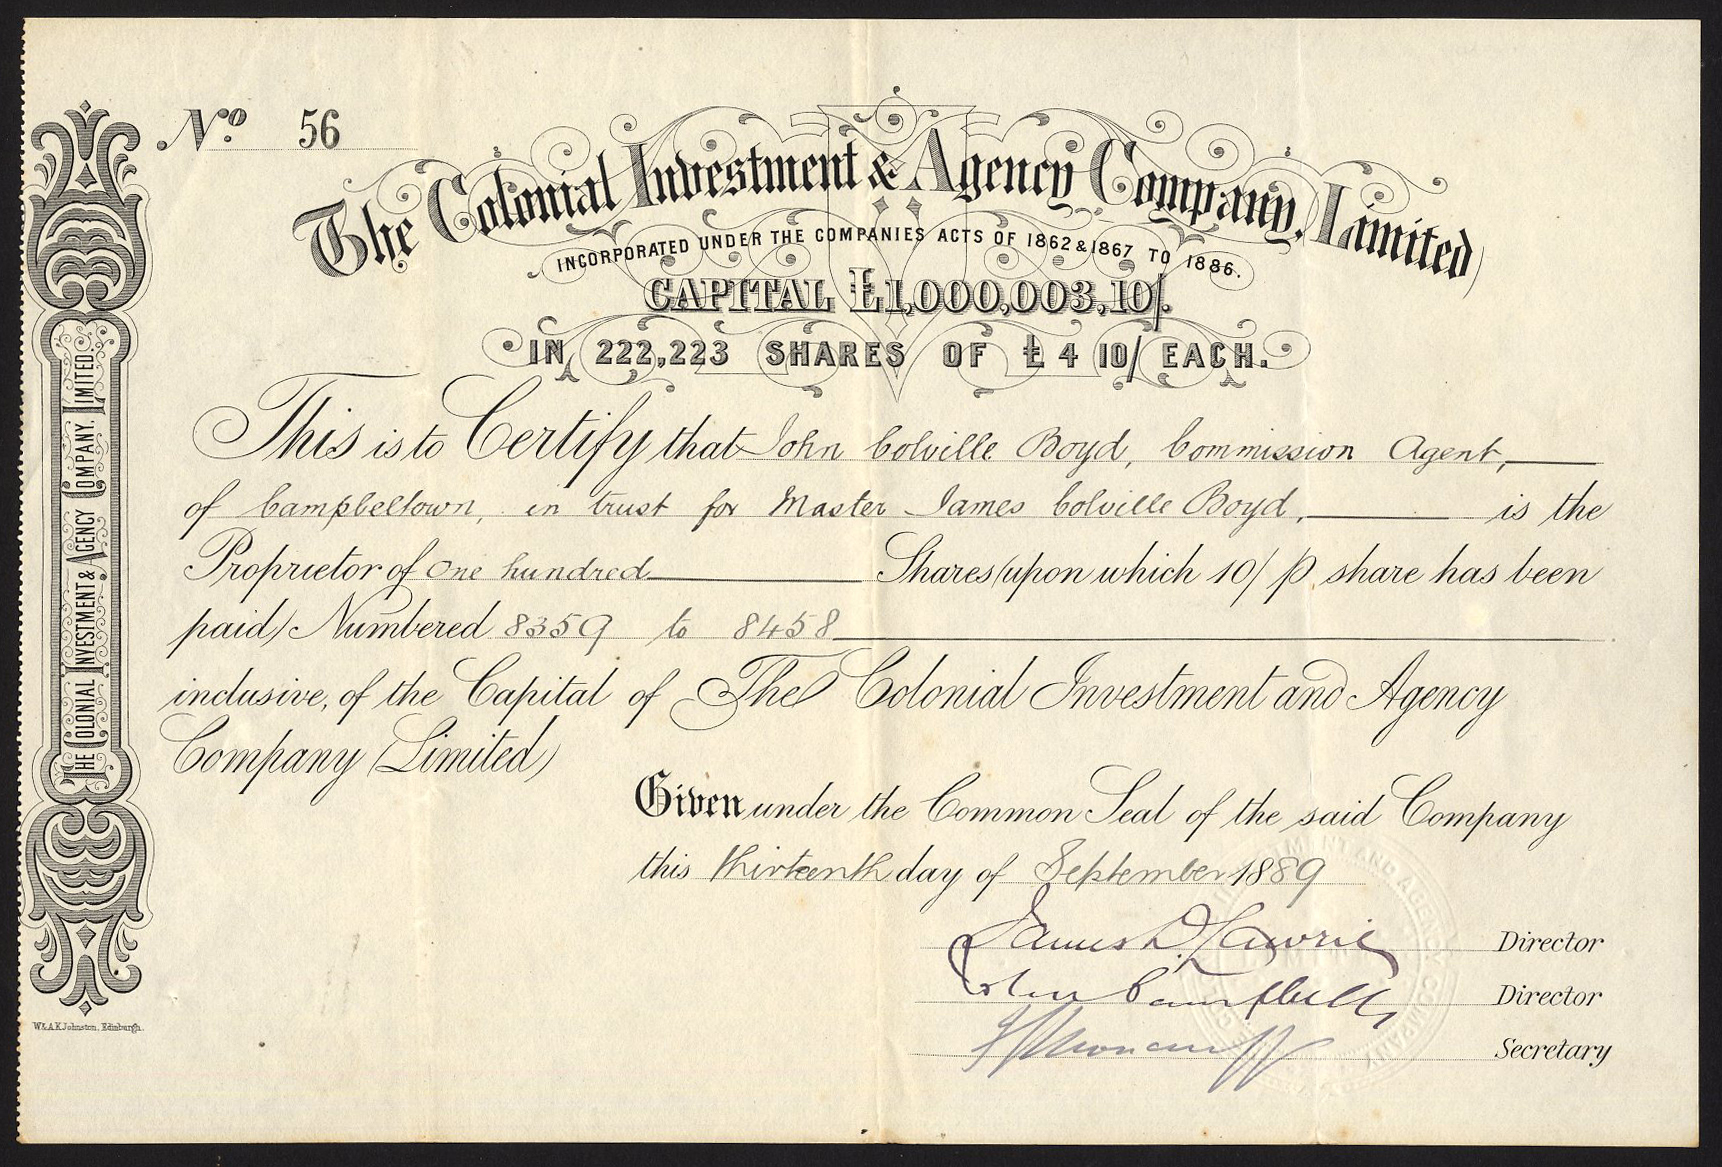 No. 56
The Colonial Investment & Agency Company, Limited
INCORPORATED UNDER THE COMPANIES ACTS OF 1862 & 1867 TO 1886.
CAPITAL £1,000,003,10/.
IN 222,223 SHARES OF £4 10/ EACH.
This is to Certify that John Colville Boyd, Commission Agent,
of Campbeltown, in trust for Master James Colville Boyd, is the
Proprietor of One hundred Shares (upon which 10/ p share has been
paid) Numbered 8359 to 8458
inclusive, of the Capital of The Colonial Investment and Agency
Company (Limited)
Given under the Common Seal of the said Company
this thirteenth day of September 1889
James D. Lawrie Director
John Campbell Director
Secretary
THE COLONIAL INVESTMENT & AGENCY COMPANY, LIMITED.
W. & A.K. Johnston, Edinburgh.